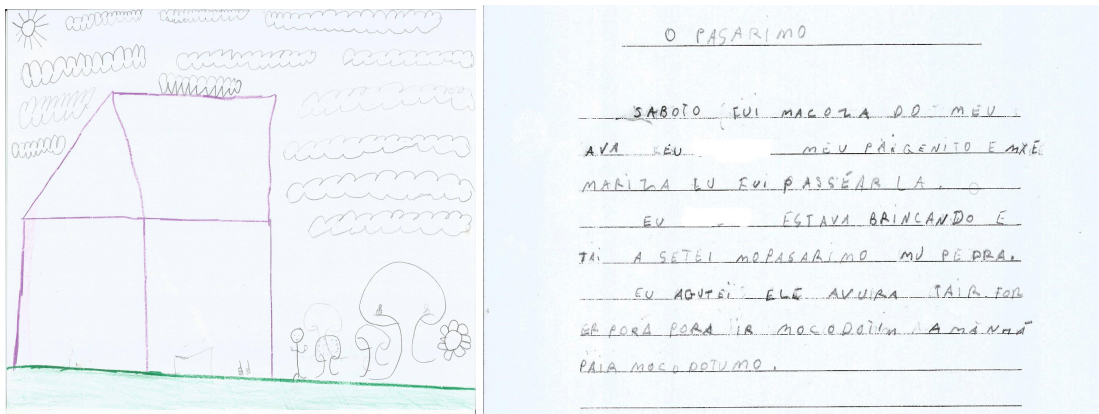 O PASARIMO
SABOTO FUI MACOZA DO MEU
AVA SEU MEU PAIGENITO E MÃE
MARIZA EU FUI PASSÉAR LA.
EU ESTAVA BRINCANDO E
TAI A SETEI MOPASARIMO MU PEDRA.
EU AGUTEI ELE AVUIRA TAIR FOR
ER PORA PORA IR MOCODOTIM AMANHÃ
PAIR MOCODOTUMO.